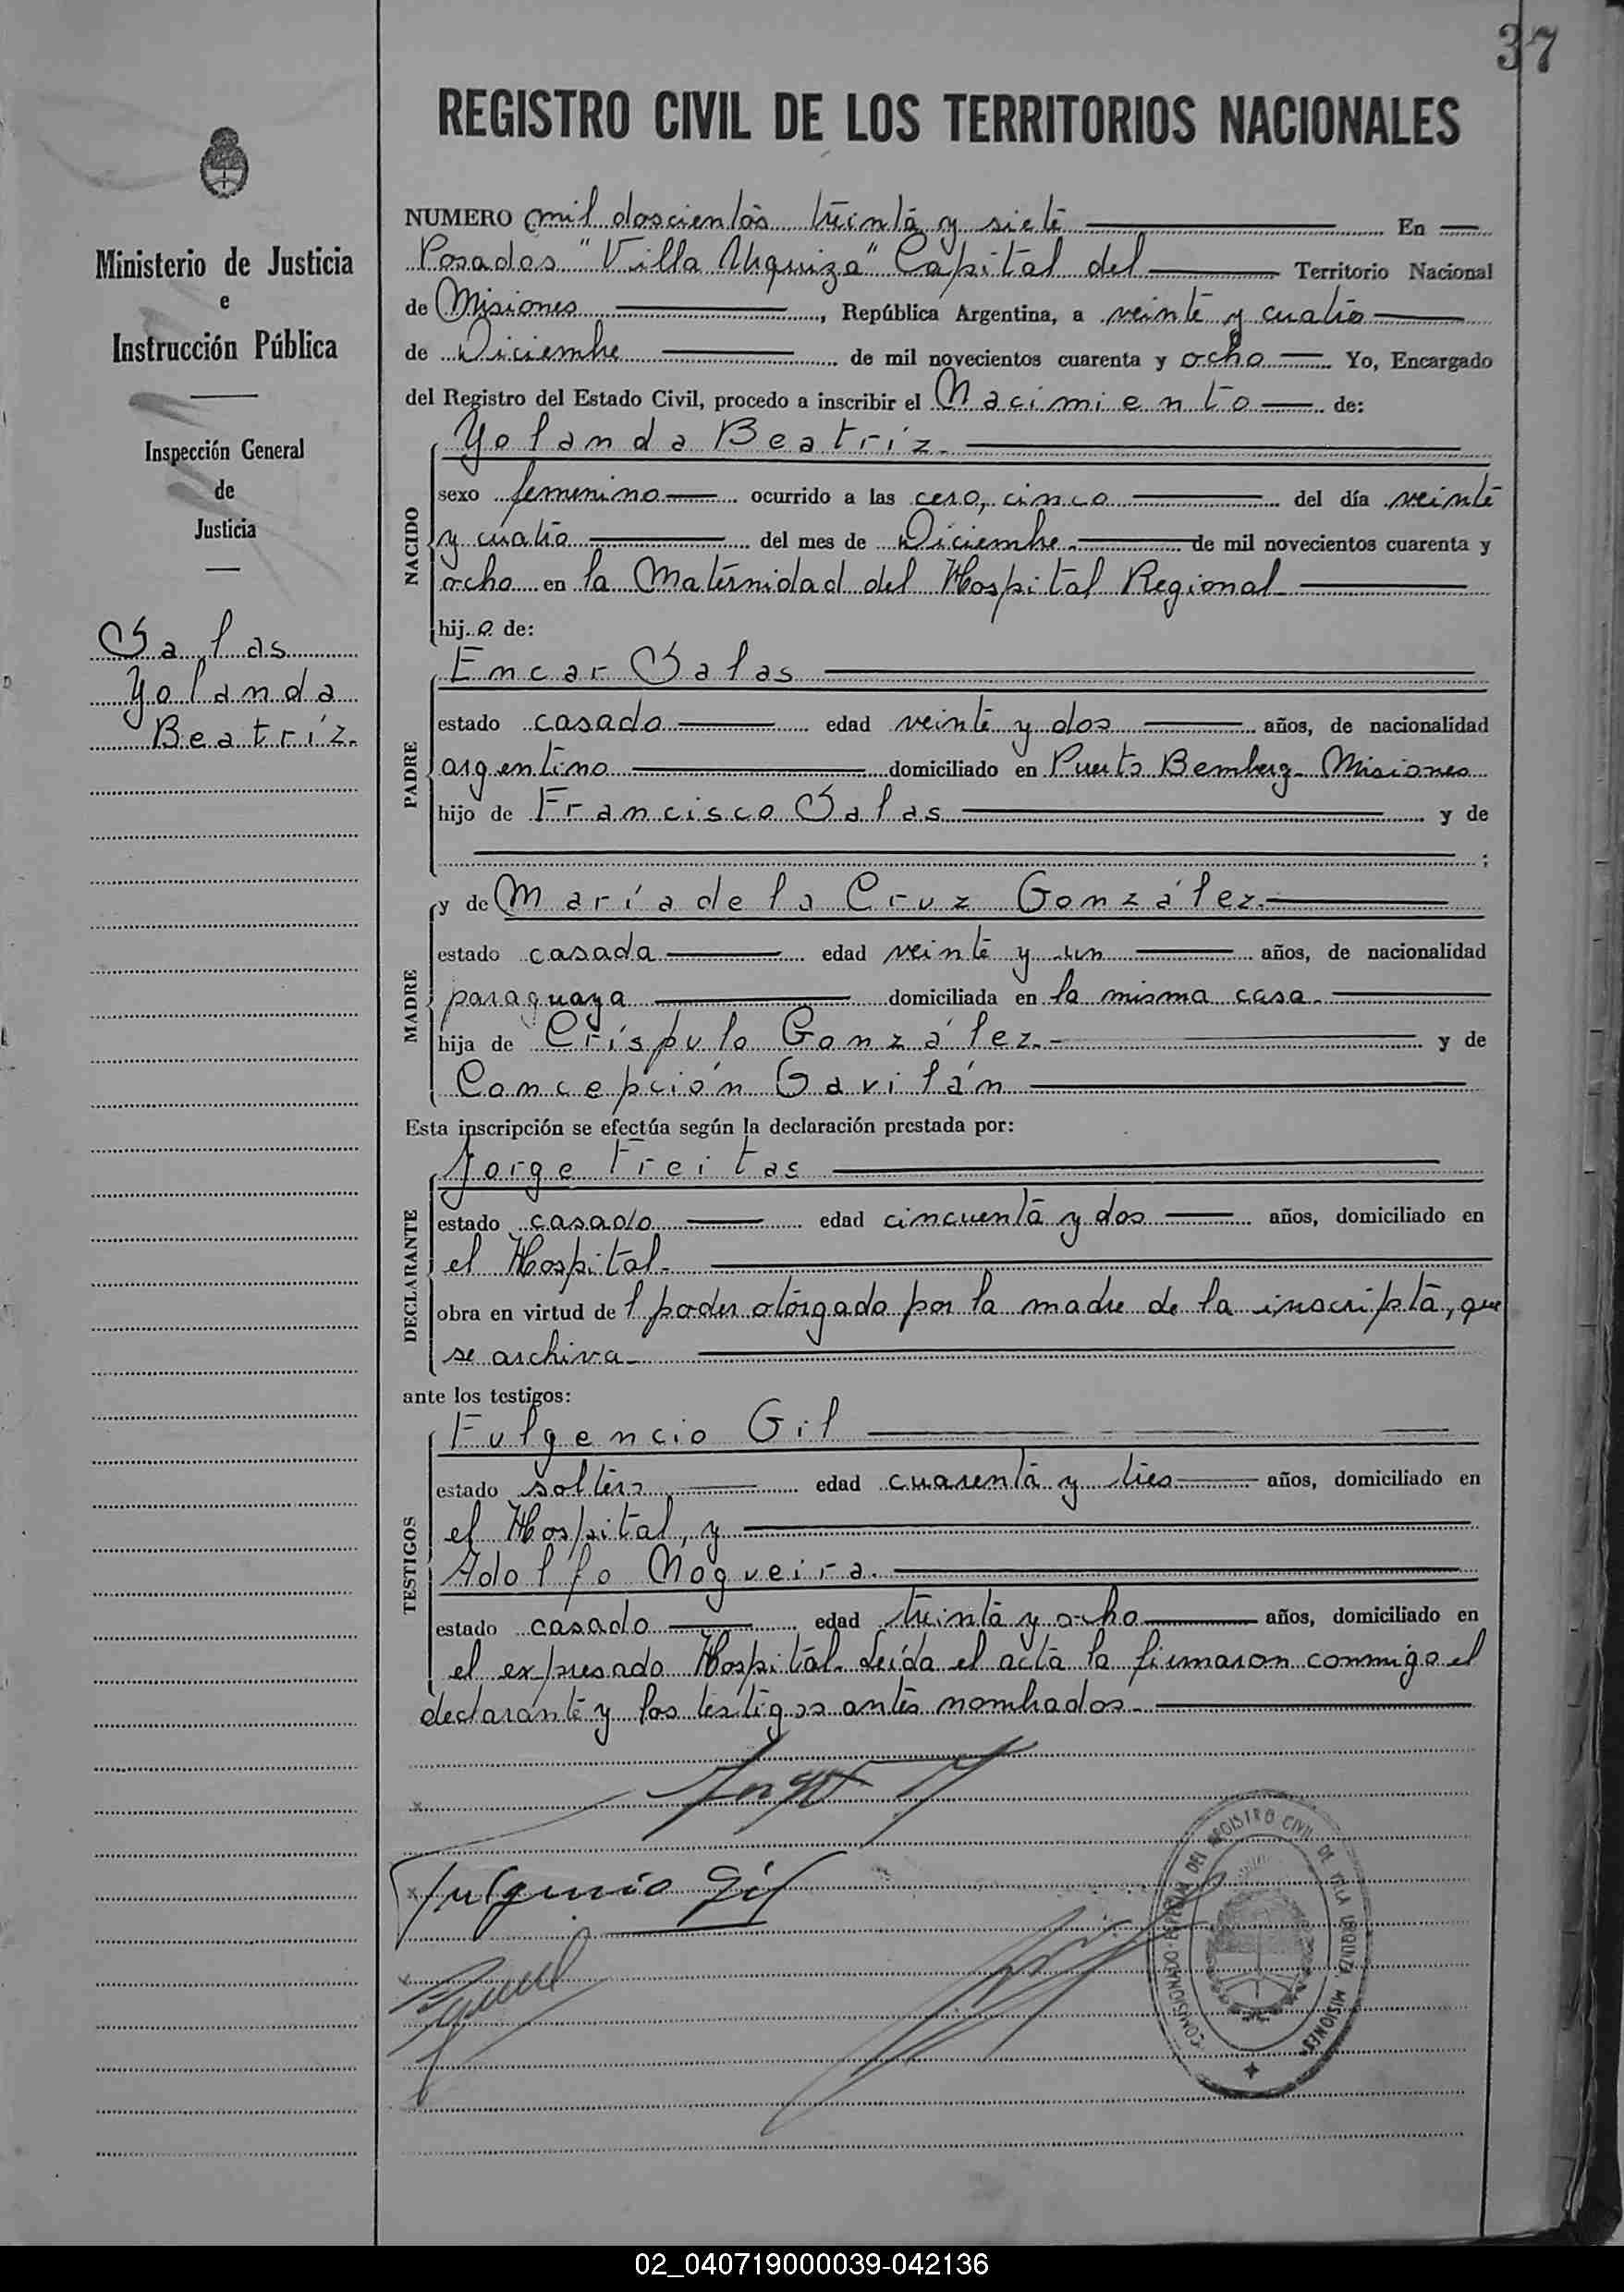 37
REGISTRO CIVIL DE LOS TERRITORIOS NACIONALES
Ministerio de Justicia
e
Instrucción Pública
Inspección General
de
Justicia
Salas
Yolanda
Beatríz.
NUMERO mil doscientos treinta y siete En
Posadas "Villa Urquiza" Capital del Territorio Nacional
de Misiones, República Argentina, a veinte y cuatro
de Diciembre de mil novecientos cuarenta y ocho Yo, Encargado
del Registro del Estado Civil, procedo a inscribir el Nacimiento de:
NACIDO
Yolanda Beatríz.
sexo femenino ocurrido a las cero, cinco del día veinte
y cuatro del mes de Diciembre. de mil novecientos cuarenta y
ocho en la Maternidad del Hospital Regional
hija de:
PADRE
Encar Salas
estado casado edad veinte y dos años, de nacionalidad
argentino domiciliado en Puerto Bemberg - Misiones
hijo de Francisco Salas y de
;
MADRE
y de María de la Cruz González.
estado casada edad veinte y un años, de nacionalidad
paraguaya domiciliada en la misma casa.
hija de Críspulo González. y de
Concepción Gavilán
Esta inscripción se efectúa según la declaración prestada por:
DECLARANTE
Jorge Freitas
estado casado edad cincuenta y dos años, domiciliado en
el Hospital.
obra en virtud del poder otorgado por la madre de la inscripta, que
se archiva.
ante los testigos:
TESTIGOS
Fulgencio Gil
estado soltero edad cuarenta y tres años, domiciliado en
el Hospital, y
Adolfo Nogueira.
estado casado edad treinta y ocho años, domiciliado en
el expresado Hospital. Leída el acta la firmaron conmigo el
declarante y los testigos antes nombrados.
Fulgencio Gil
COMISIONADO ESPECIAL DEL REGISTRO CIVIL DE VILLA URQUIZA MISIONES
02_040719000039-042136